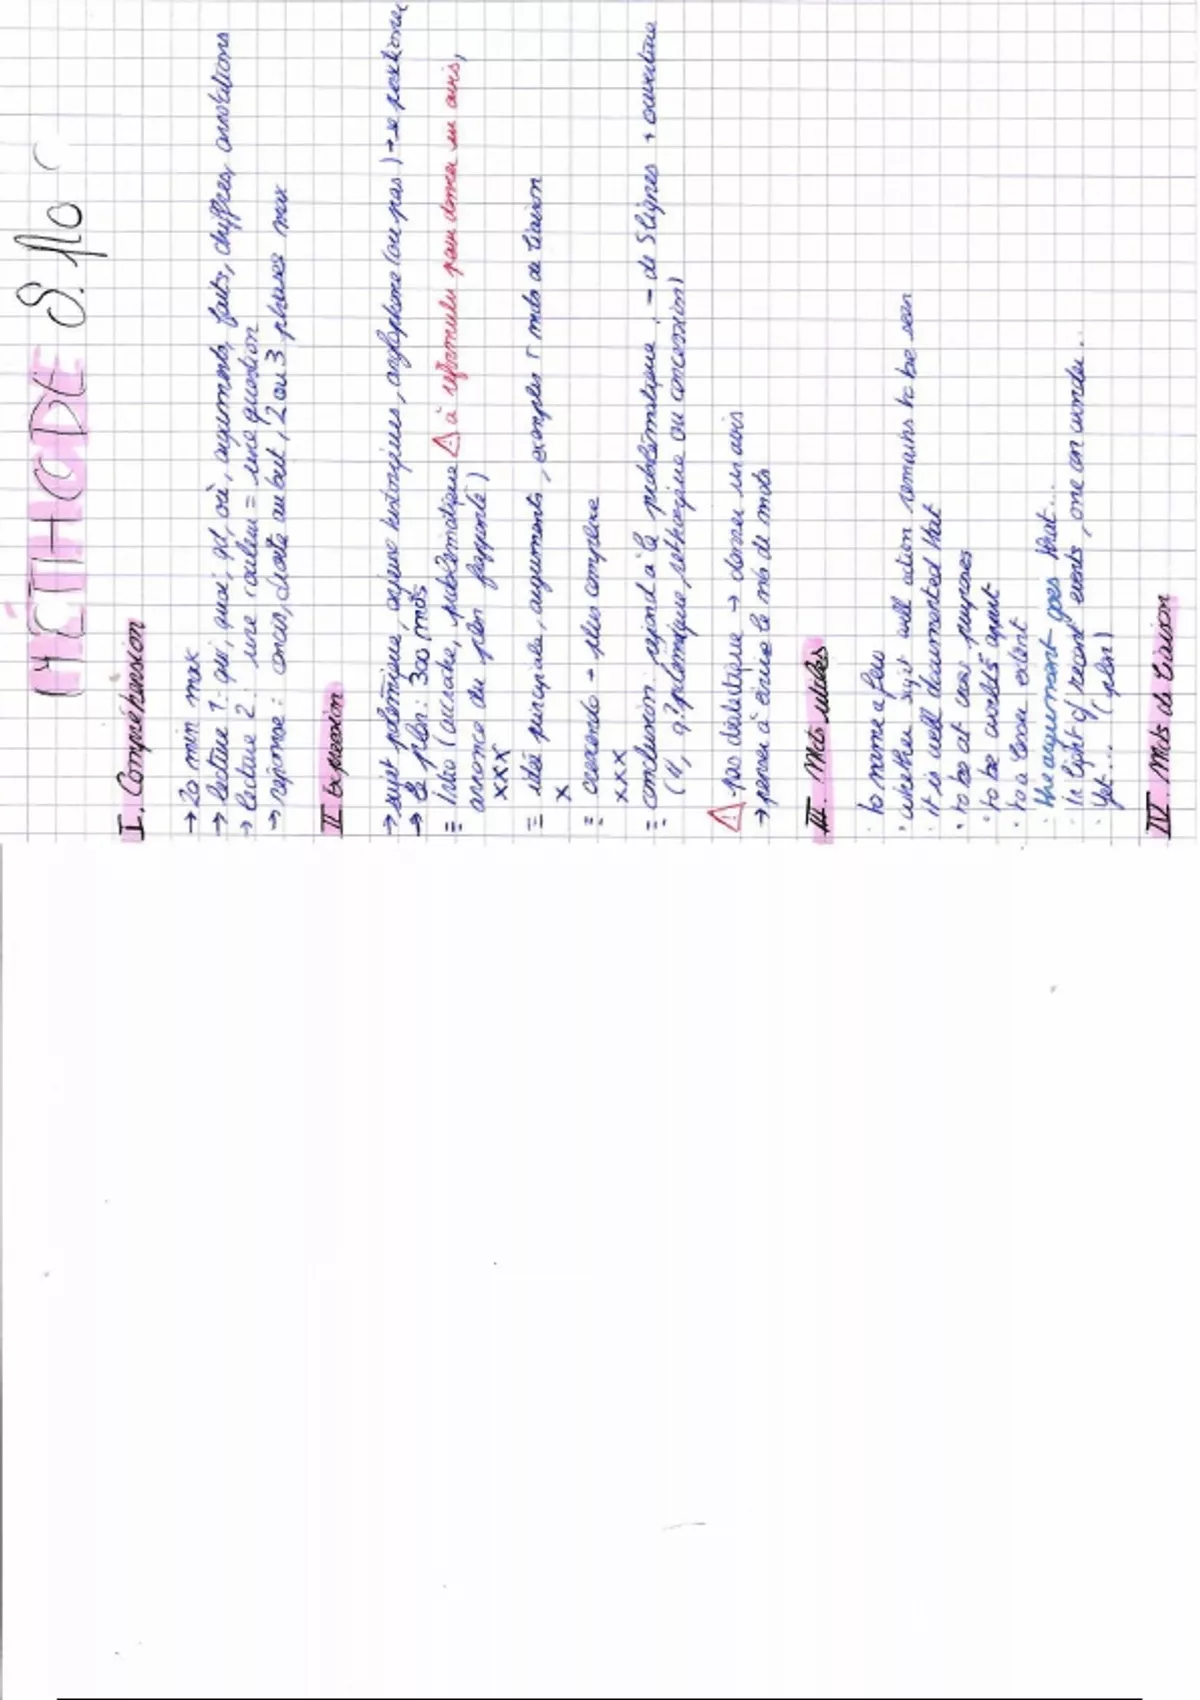 MÉTHODE
I. Compréhension
→ 20 min max
→ lecture 1 : qui, quoi, qd, où, arguments, faits, chiffres, annotations
→ lecture 2 : une couleur = une question
→ réponse : concis, droit au but, 2 ou 3 phrases max
II Expression
→ sujet polémique, enjeux historiques, anglophone (ou pas) → se positionner
→ plan : 300 mots
= Intro (accroche, problématique ⚠ à reformuler pour donner un avis,
annonce du plan frappante)
xxx
= idée principale, arguments, exemples + mots de liaison
x
= crescendo → plus complexe
xxx
= conclusion : répond à la problématique, - de 5 lignes + ouverture
(q° polémique, réthorique ou concession)
⚠ pas dialectique → donner un avis
→ penser à écrire le nb de mots
III. Mots utiles
· to name a few
· whether will action remains to be seen
· it is well documented that
· to be at cross purposes
· to be worlds apart
· to a lesser extent
· the argument goes that...
· In light of recent events, one can wonder...
· Yet... (plan)
IV. Mots de liaison